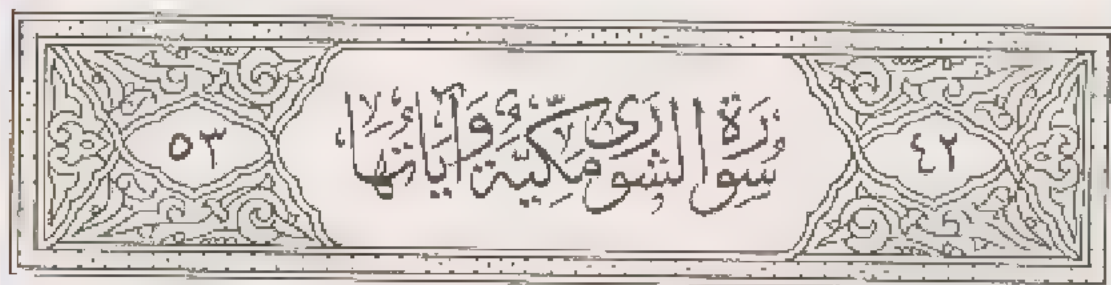 ٤٢ سُورَةُ الشُّورَى مَكِّيَّة وَآيَاتُهَا ٥٣